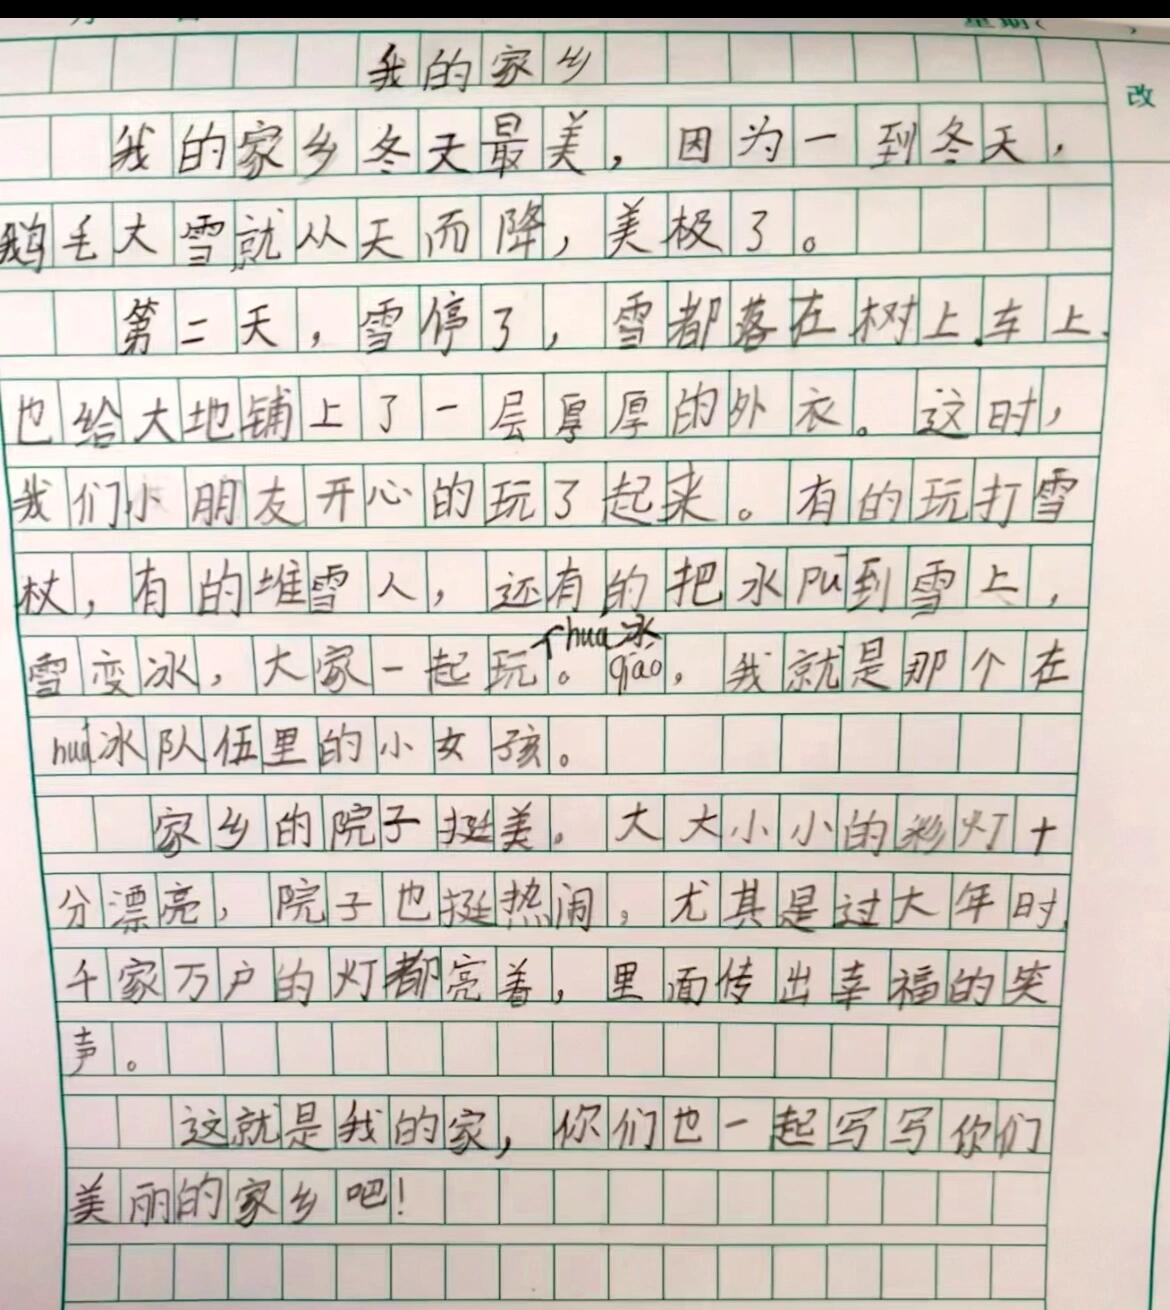 星期(
改
我的家乡
我的家乡冬天最美，因为一到冬天，
鹅毛大雪就从天而降，美极了。
第二天，雪停了，雪都落在树上.车上.
也给大地铺上了一层厚厚的外衣。这时，
我们小朋友开心的玩了起来。有的玩打雪
杖，有的堆雪人，还有的把水pū到雪上，
huá冰
雪变冰，大家一起玩。qiáo，我就是那个在
huá冰队伍里的小女孩。
家乡的院子挺美。大大小小的彩灯十
分漂亮，院子也挺热闹，尤其是过大年时，
千家万户的灯都亮着，里面传出幸福的笑
声。
这就是我的家，你们也一起写写你们
美丽的家乡吧！